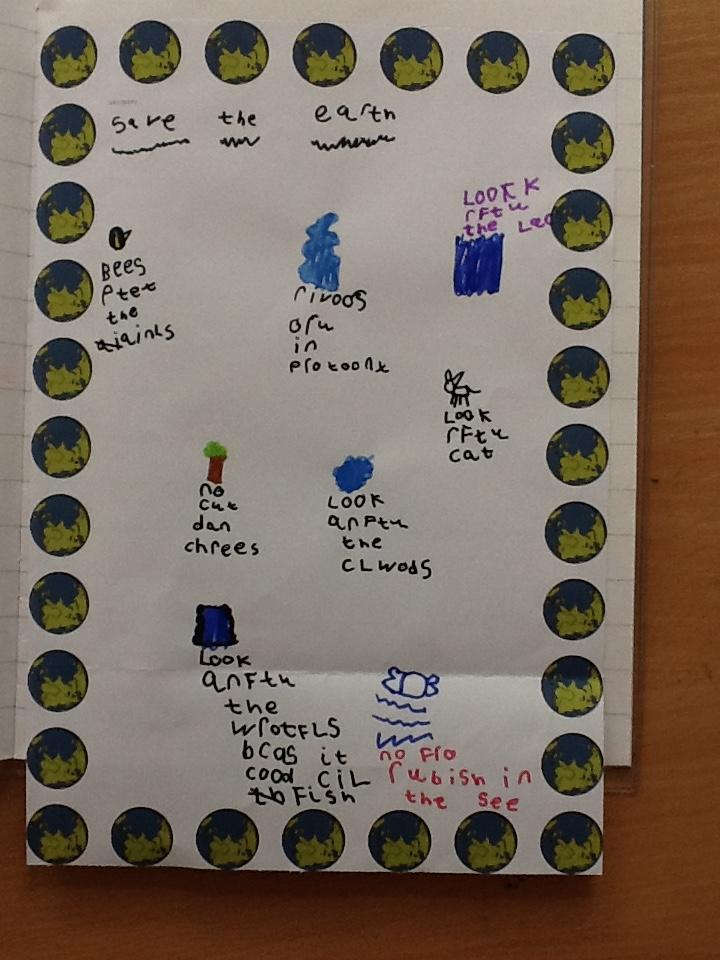 save the earth
LOOK K
rFtu
the Lec
Bees
Ptet
the
rivoos
aru
in
protoont
LOOK
rFtu
cat
no
cut
dan
chrees
LOOK
anFtu
the
CLwods
LOOK
anFtu
the
wrotFLS
bcas it
cood CiL
Fish
no Flo
rubish in
the see